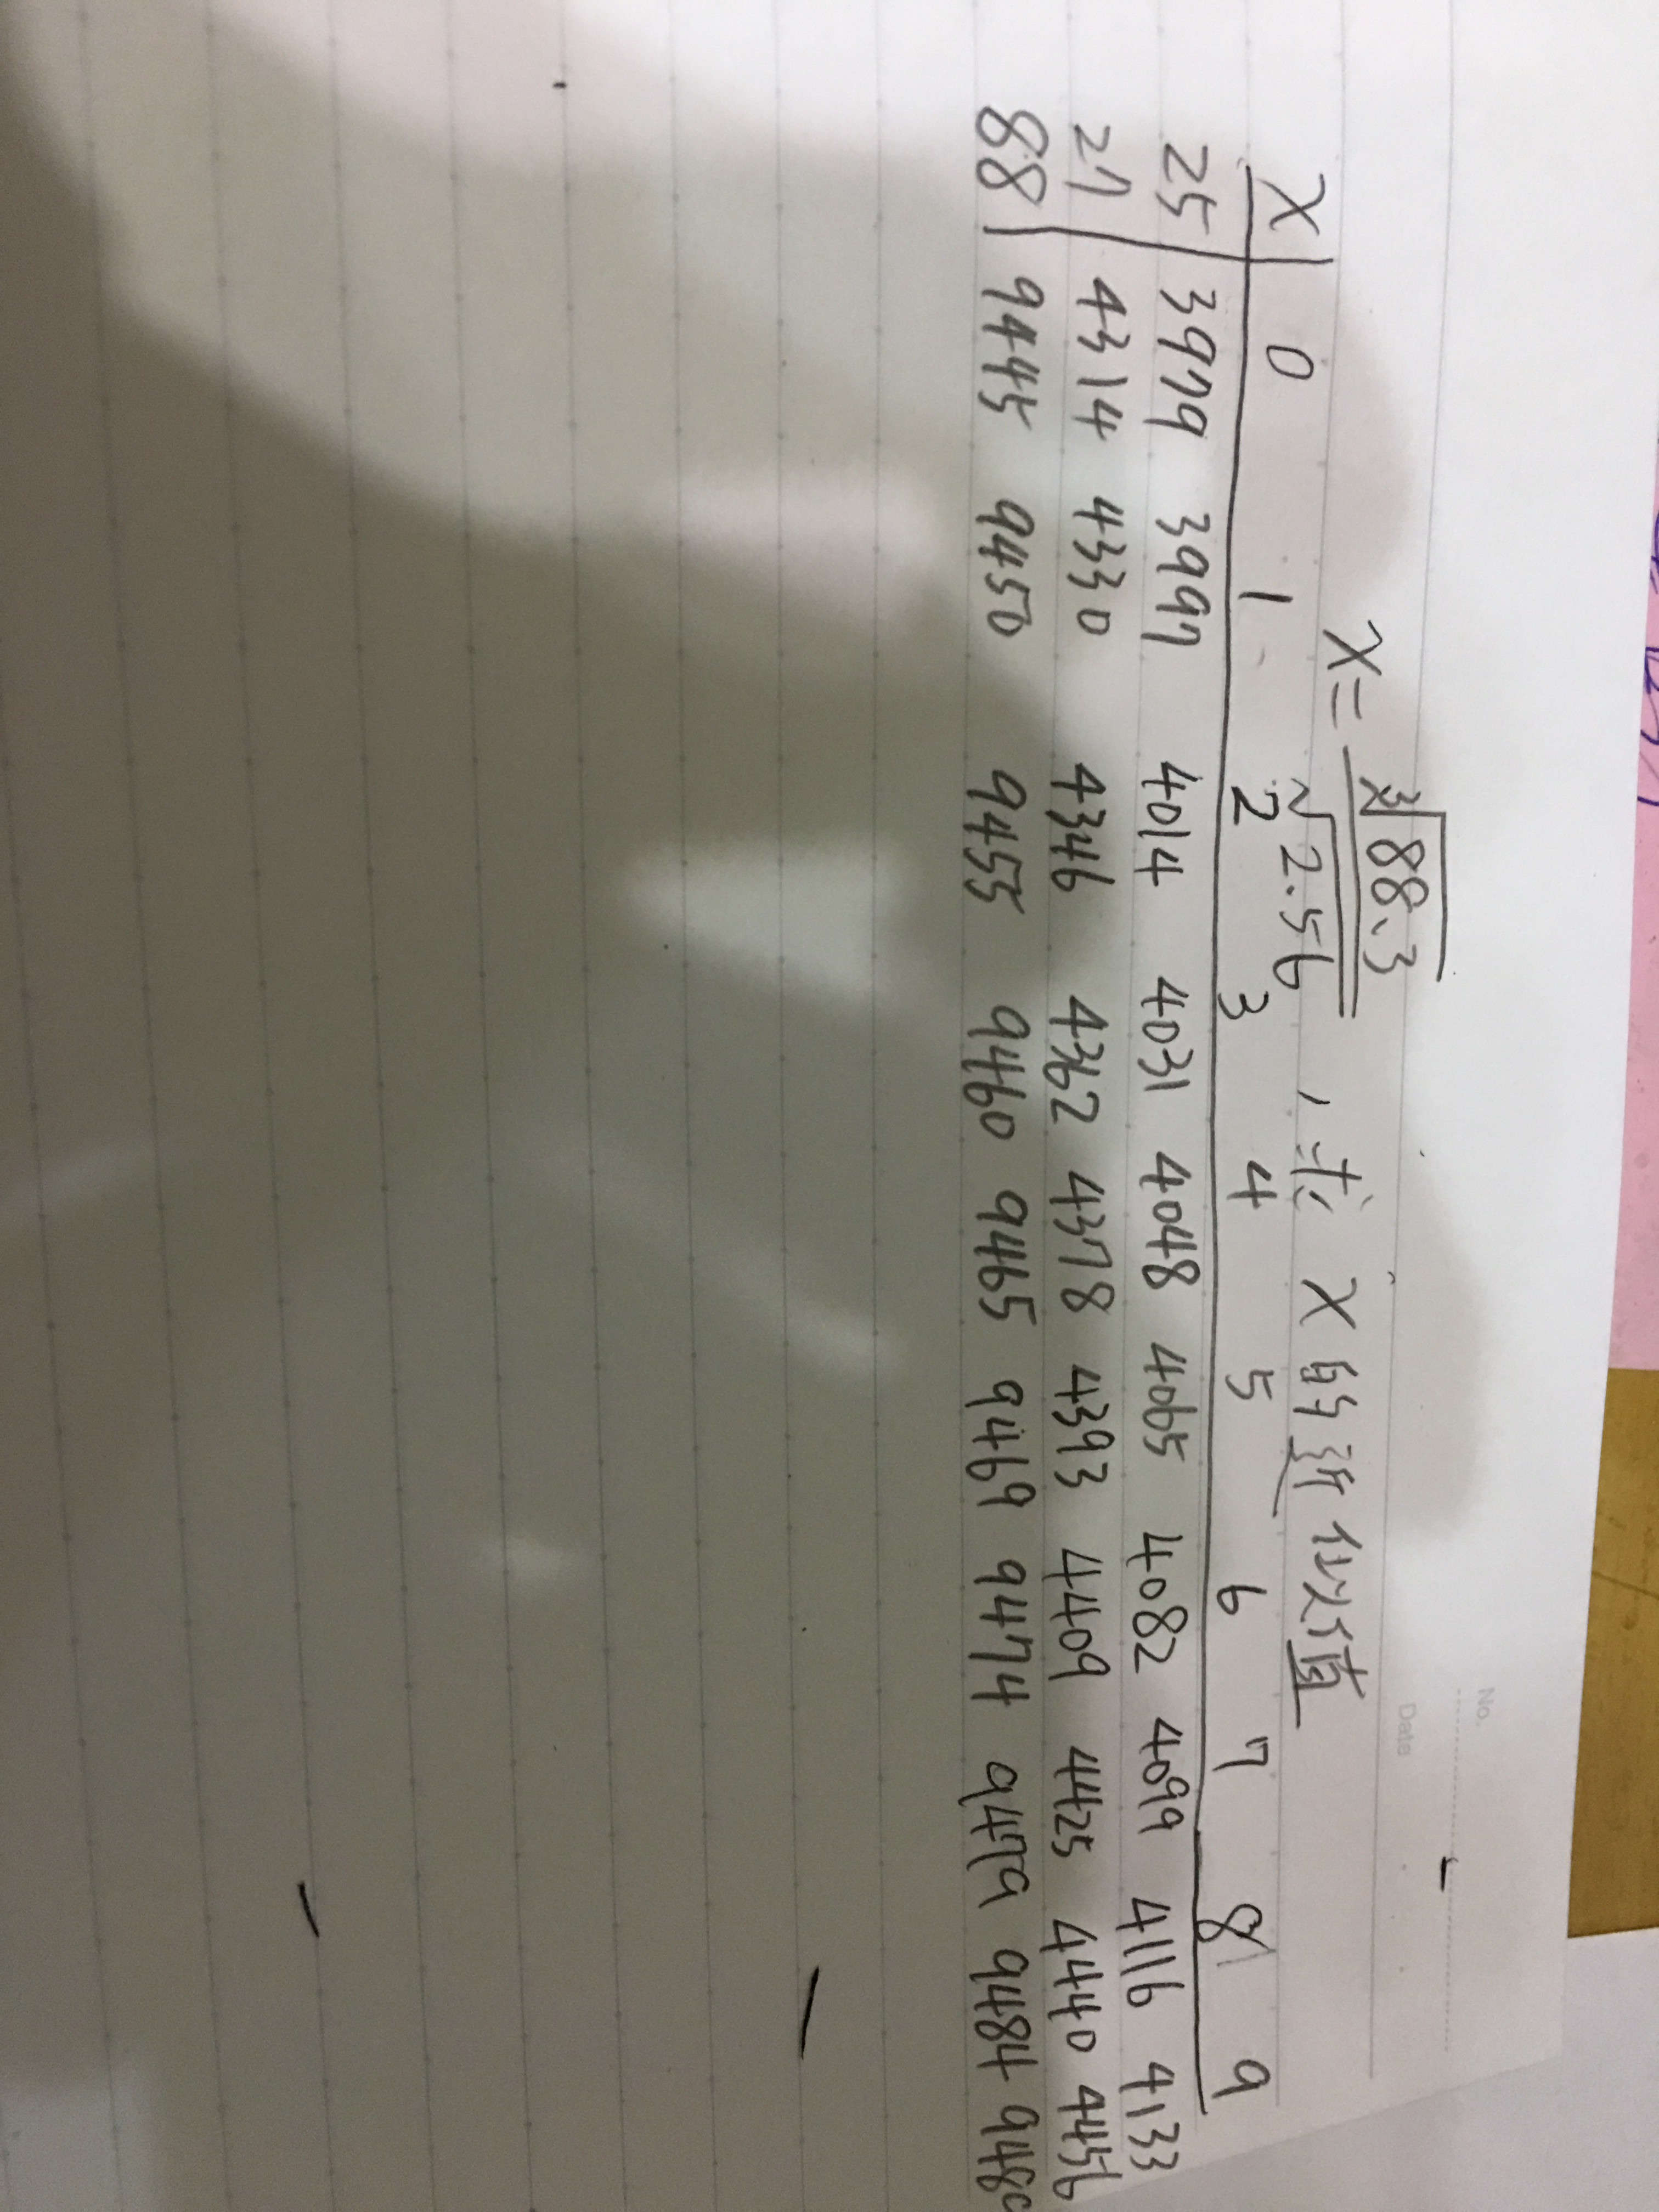 No.
Date
x = ∛88.3 / √2.56 , 求 x 的近似值
x 0 1 2 3 4 5 6 7 8 9
25 3979 3997 4014 4031 4048 4065 4082 4099 4116 4133
27 4314 4330 4346 4362 4378 4393 4409 4425 4440 4456
88 9445 9450 9455 9460 9465 9469 9474 9479 9484